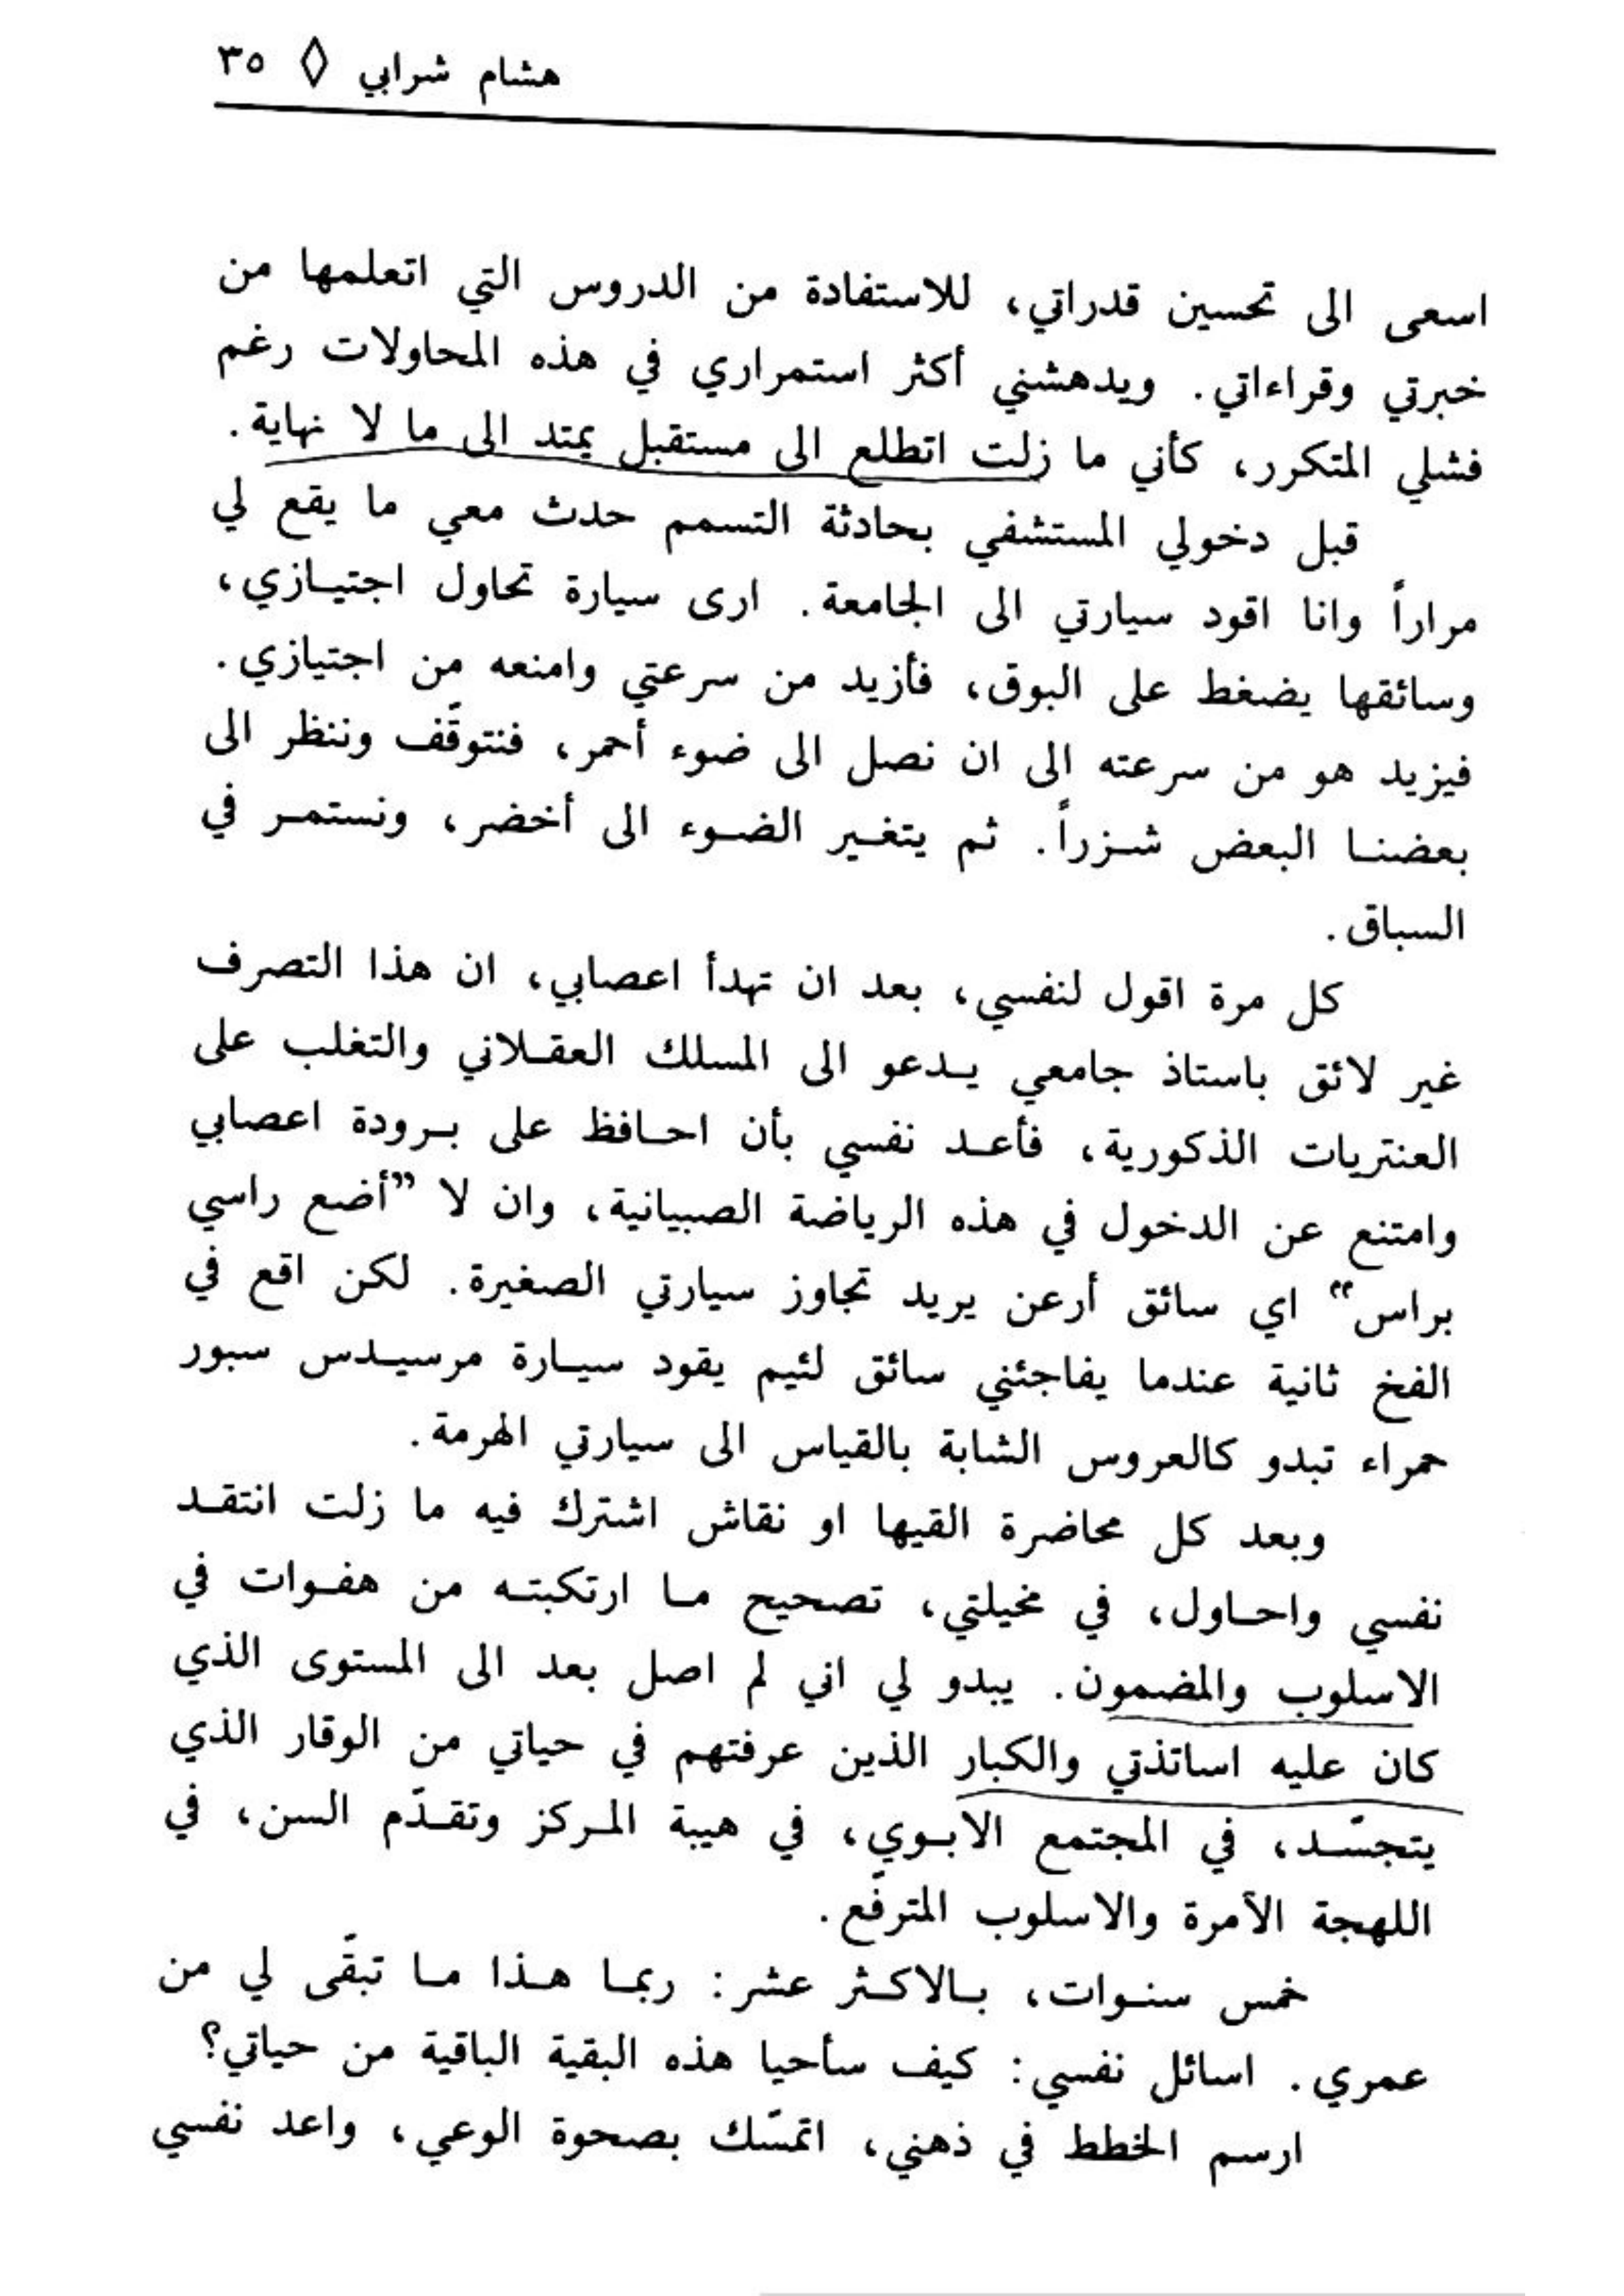 هشام شرابي ◊ ٣٥
اسعى الى تحسين قدراتي، للاستفادة من الدروس التي اتعلمها من
خبرتي وقراءاتي. ويدهشني أكثر استمراري في هذه المحاولات رغم
فشلي المتكرر، كأني ما زلت اتطلع الى مستقبل يمتد الى ما لا نهاية.
قبل دخولي المستشفي بحادثة التسمم حدث معي ما يقع لي
مراراً وانا اقود سيارتي الى الجامعة. ارى سيارة تحاول اجتيازي،
وسائقها يضغط على البوق، فأزيد من سرعتي وامنعه من اجتيازي.
فيزيد هو من سرعته الى ان نصل الى ضوء أحمر، فنتوقّف وننظر الى
بعضنا البعض شزراً. ثم يتغير الضوء الى أخضر، ونستمر في
السباق.
كل مرة اقول لنفسي، بعد ان تهدأ اعصابي، ان هذا التصرف
غير لائق باستاذ جامعي يدعو الى المسلك العقلاني والتغلب على
العنتريات الذكورية، فأعد نفسي بأن احافظ على برودة اعصابي
وامتنع عن الدخول في هذه الرياضة الصبيانية، وان لا ”أضع راسي
براس“ اي سائق أرعن يريد تجاوز سيارتي الصغيرة. لكن اقع في
الفخ ثانية عندما يفاجئني سائق لئيم يقود سيارة مرسيدس سبور
حمراء تبدو كالعروس الشابة بالقياس الى سيارتي الهرمة.
وبعد كل محاضرة القيها او نقاش اشترك فيه ما زلت انتقد
نفسي واحاول، في مخيلتي، تصحيح ما ارتكبته من هفوات في
الاسلوب والمضمون. يبدو لي اني لم اصل بعد الى المستوى الذي
كان عليه اساتذتي والكبار الذين عرفتهم في حياتي من الوقار الذي
يتجسّد، في المجتمع الابوي، في هيبة المركز وتقدّم السن، في
اللهجة الآمرة والاسلوب المترفّع.
خمس سنوات، بالاكثر عشر: ربما هذا ما تبقّى لي من
عمري. اسائل نفسي: كيف سأحيا هذه البقية الباقية من حياتي؟
ارسم الخطط في ذهني، اتمسّك بصحوة الوعي، واعد نفسي